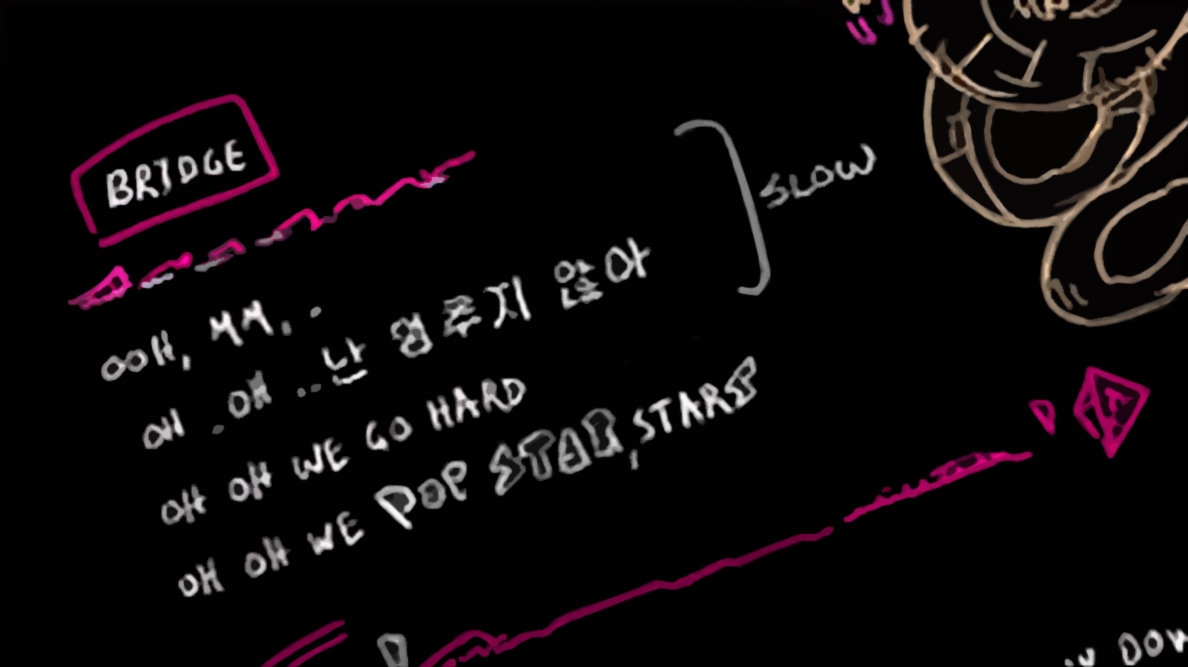 BRIDGE
SLOW
OOH, MM, .
OH . OH ... 난 멈추지 않아
OH OH WE GO HARD
OH OH WE POP STAR, STARS